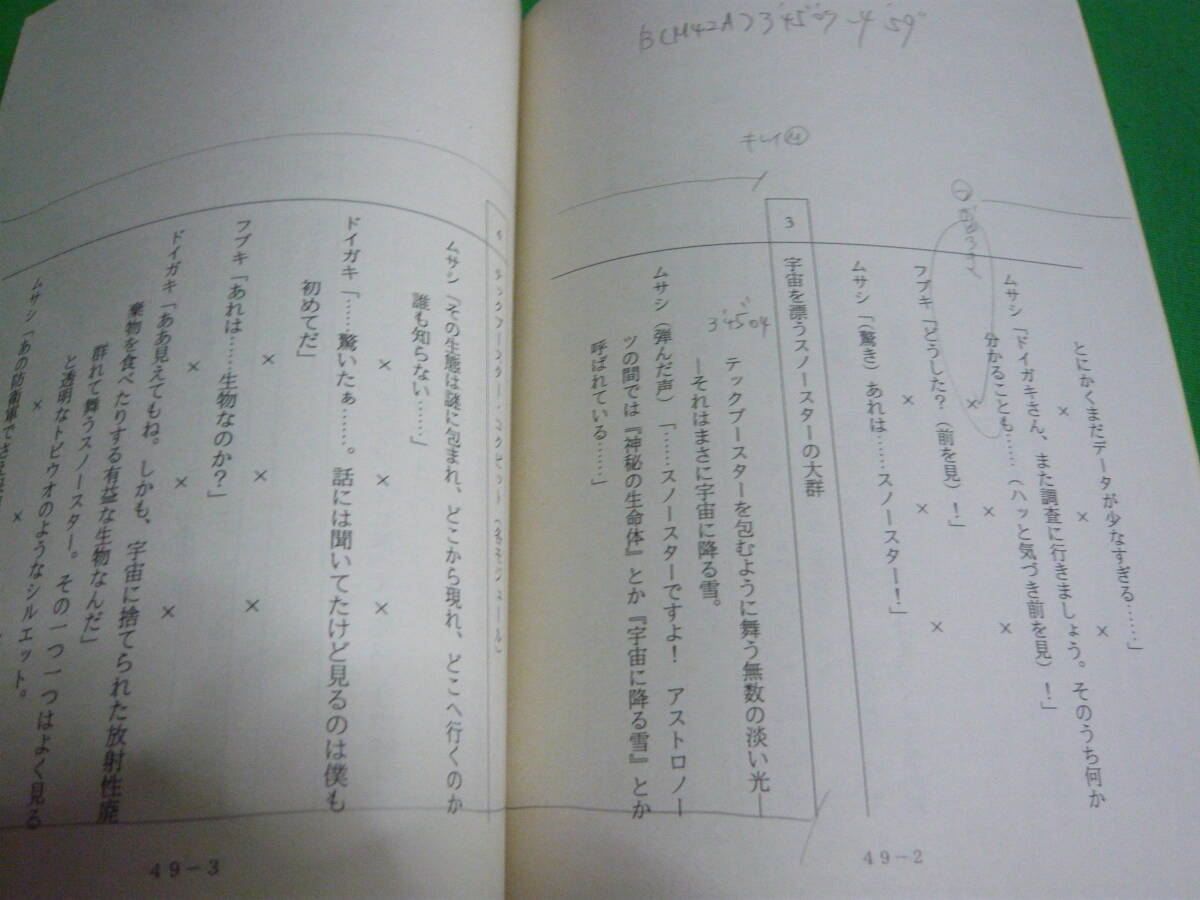 B(M42A)3'45"07~4'59"
とにかくまだデータが少なすぎる……」
×　×　×
ムサシ「ドイガキさん、また調査に行きましょう。そのうち何か
分かることも……（ハッと気づき前を見）！」
×　×　×
フブキ「どうした？（前を見）！」
×　×　×
ムサシ「（驚き）あれは……スノースター！」
3　宇宙を漂うスノースターの大群
キレイ
3'45"04
テックブースターを包むように舞う無数の淡い光―
―それはまさに宇宙に降る雪。
ムサシ（弾んだ声）「……スノースターですよ！　アストロノー
ツの間では『神秘の生命体』とか『宇宙に降る雪』とか
呼ばれている……」
49-2
4　テックブースター・コクピット（各モジュール）
ムサシ（その生態は謎に包まれ、どこから現れ、どこへ行くのか
誰も知らない……」
×　×　×
ドイガキ「……驚いたぁ……。話には聞いてたけど見るのは僕も
初めてだ」
×　×　×
フブキ「あれは……生物なのか？」
×　×　×
ドイガキ「ああ見えてもね。しかも、宇宙に捨てられた放射性廃
棄物を食べたりする有益な生物なんだ」
群れて舞うスノースター。その一つ一つはよく見る
と透明なトビウオのようなシルエット。
×　×
ムサシ「あの防衛軍でさえ
49-3